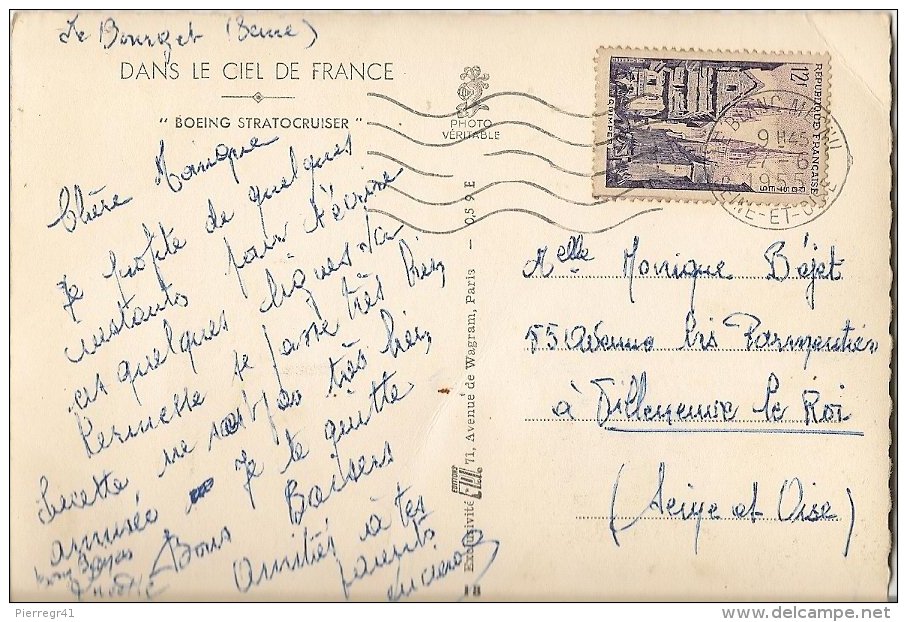 Le Bourget (Seine)
DANS LE CIEL DE FRANCE
" BOEING STRATOCRUISER "
PHOTO
VÉRITABLE
Chère Monique
Je profite de quelques
instants pour t'écrire
ces quelques lignes. La
Kermesse se passe très bien,
Lucette ne s'est pas très bien
amusée Je te quitte
Bons Baisers
Amitiés à tes
parents
Exclusivité 71, Avenue de Wagram, Paris — 0,5 9 E
18
RÉPUBLIQUE FRANÇAISE
12f
QUIMPER
POSTES
BLANC-MESNIL
9 H45
27-6
1955
SEINE-ET-OISE
Melle Monique Bájet
55 Avenue Parmentier
à Villeneuve le Roi
(Seine et Oise)
Pierregr41
http://www.delcampe.net